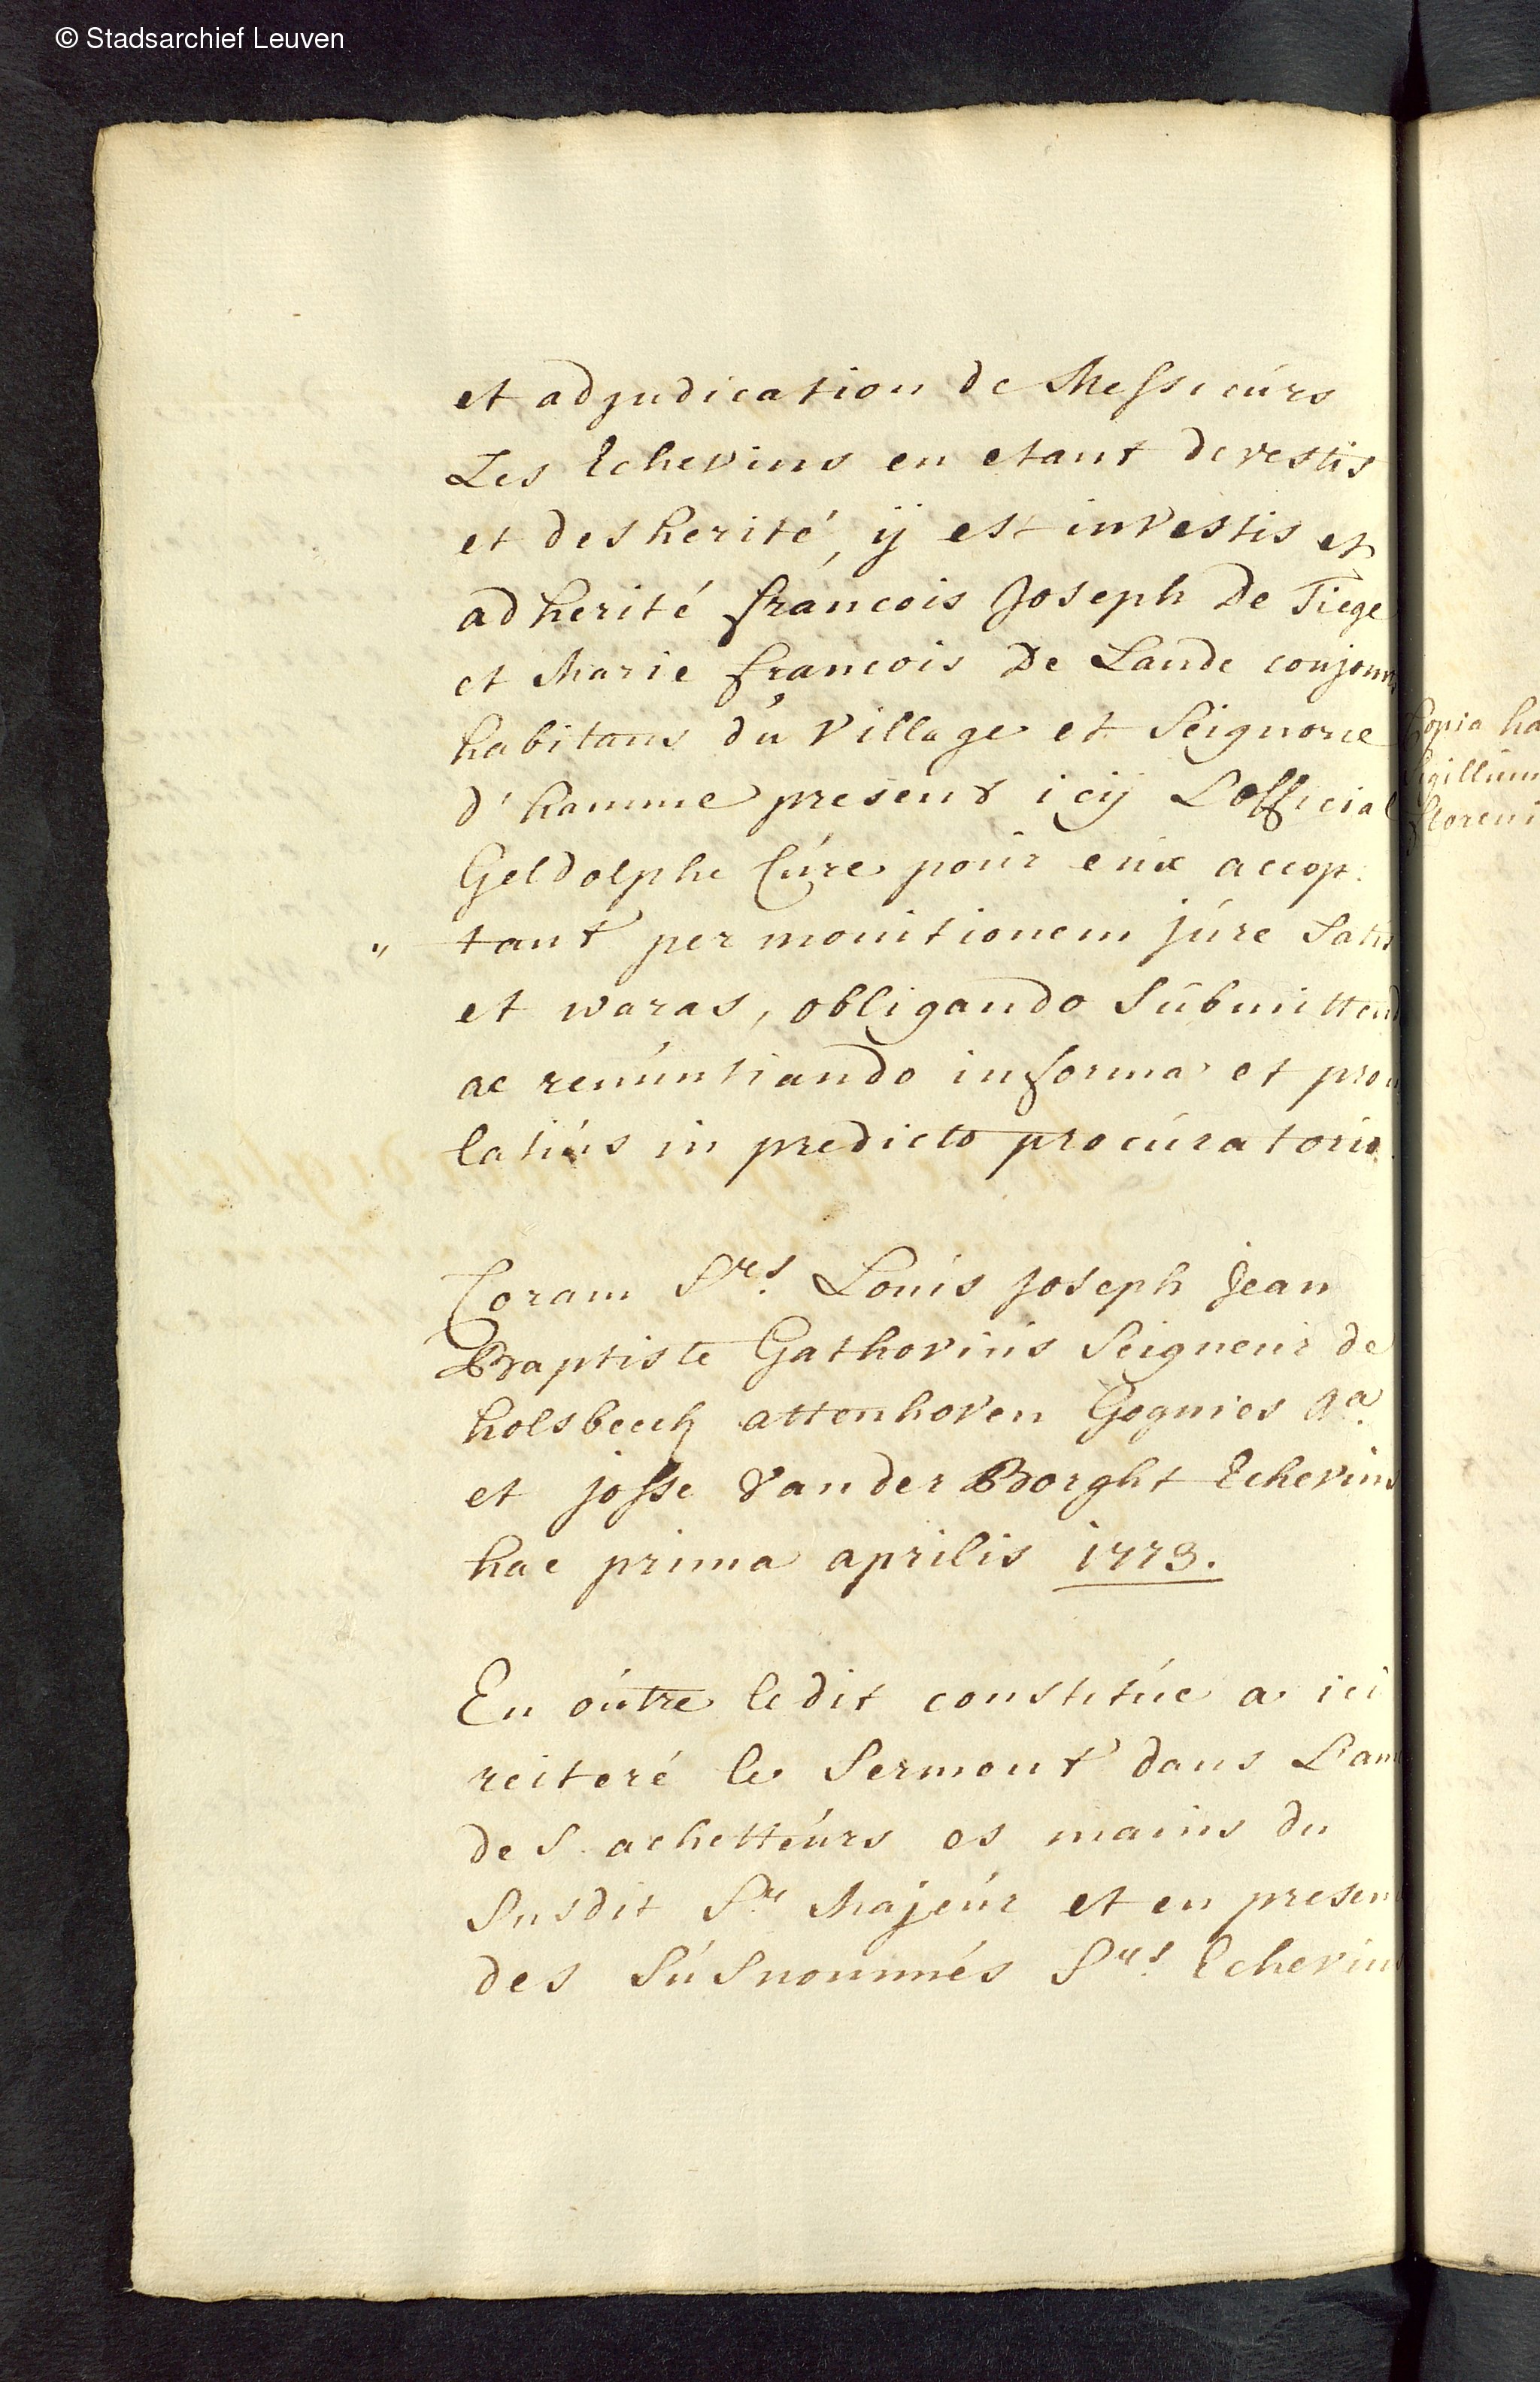 © Stadsarchief Leuven
et adjudication de Messieurs
Les Echevins en etant devestis
et desherité, ij est investis et
adherité francois Joseph De Tiege
et Marie francois De Lande conjoin
habitans du Village et Seignorie
d'hamme present icij L'official
Geldolphe Cúre pour eux accep
" tant per monitionem júre Satis
et waras, obligando Submittend
ac renúntiando in forma et prou
latiùs in predicto procúratorio
Coram Srs. Louis Joseph Jean
Baptiste Gathovius Seigneur de
holsbeeck attenhoven Gognies &a
et josse Vander Borght Echevins
hac prima aprilis 1773.
En oútre ledit constitúe a ici
reiteré le Serment dans L'am
des achetteúrs es mains du
Susdit Sr. Majeúr et en presen
des Súsnommés Srs. Echevins
Copia ha
Sigillum
floreni